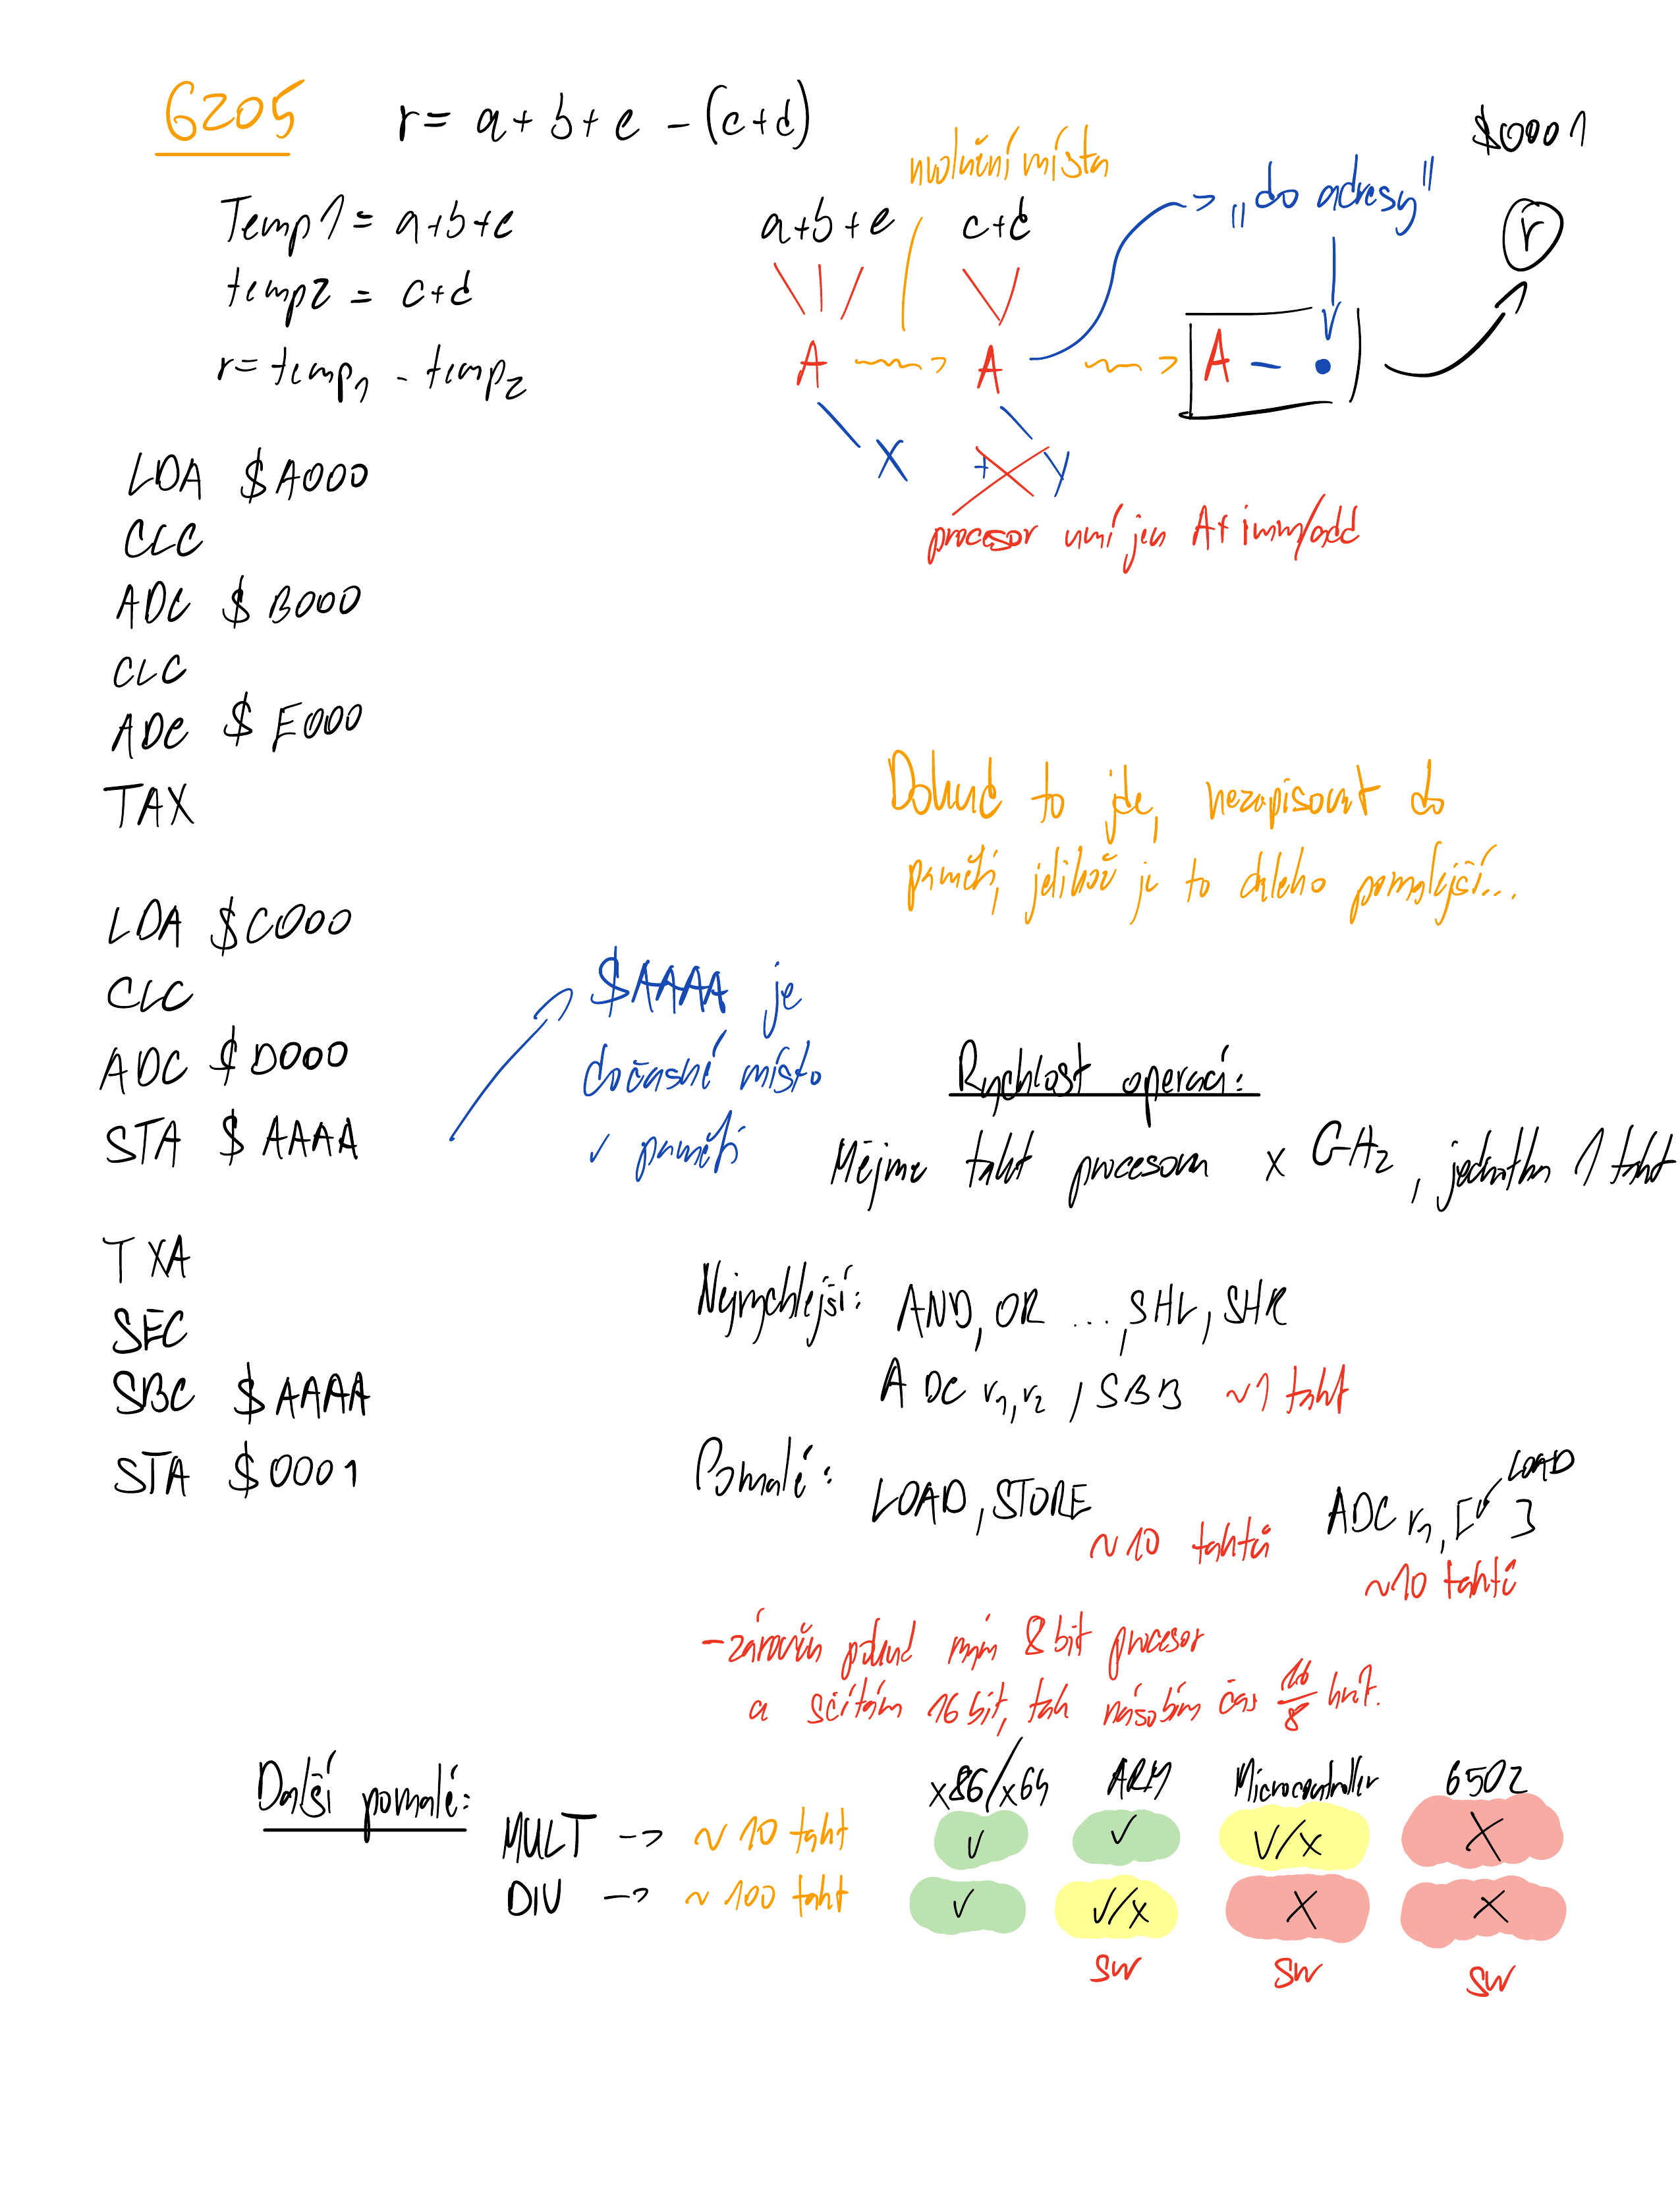 6205
r = a + b + e - (c+d)
Temp1 = a+b+e
temp2 = c+d
r = temp1 - temp2
uvolnění místa
a+b+e
c+d
"do adresy"
$0001
r
A
A
A - •
X
+ X Y
procesor umí jen A + imm/add
LDA $A000
CLC
ADC $B000
CLC
ADC $E000
TAX
LDA $C000
CLC
ADC $D000
STA $AAAA
TXA
SEC
SBC $AAAA
STA $0001
Dokud to jde, nezapisovat do
paměti, jelikož je to daleko pomalejší...
$AAAA je
dočasné místo
v paměti
Rychlost operací:
Mějme takt procesoru x GHz, jednotka 1 takt
Nejrychlejší: AND, OR ..., SHL, SHR
ADC r1, r2, SBB ~1 takt
Pomalé: LOAD, STORE
~10 taktů
LOAD
ADC r1, [ ]
~10 taktů
- zároveň pokud mám 8 bit procesor
a sčítám 16 bit, tak násobím čas 16/8 krát.
Další pomalé:
x86/x64 ARM Microcontroller 6502
MULT -> ~10 takt ✓ ✓ ✓/x X
DIV -> ~100 takt ✓ ✓/x X X
SW SW SW